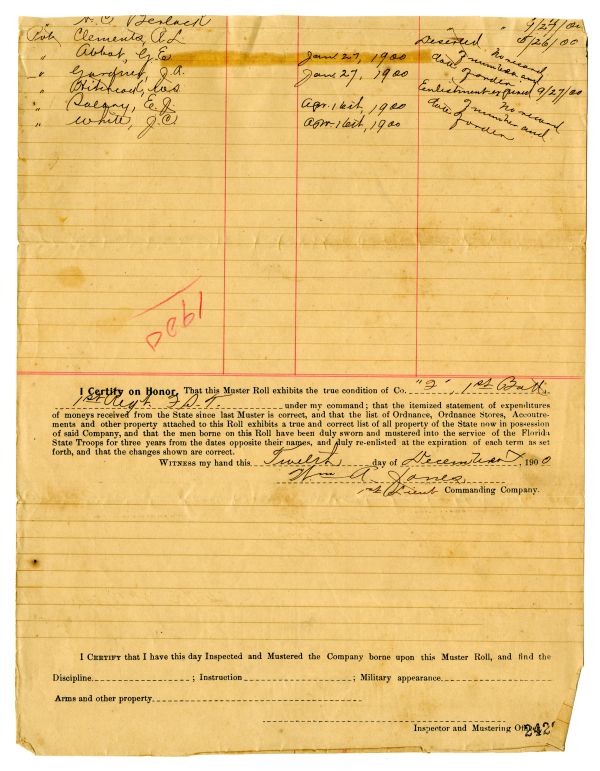 " N. C. Berlack " " 9/24/00
Pvt Clements, A. L. Deserted 8/26/00
" Abbot, G. E. Jan 27, 1900 No record
" Gardner, J. A. Jan 27, 1900 date of order
" Enlistment expired 9/27/00
" E. J. Apr. 16th, 1900 No record
" White, J. C. Apr. 16th, 1900 date of number and of order
I Certify on Honor, That this Muster Roll exhibits the true condition of Co. "F", 1st Batt.,
1st Regt F. S. T. under my command; that the itemized statement of expenditures
of moneys received from the State since last Muster is correct, and that the list of Ordnance, Ordnance Stores, Accoutre-
ments and other property attached to this Roll exhibits a true and correct list of all property of the State now in possession
of said Company, and that the men borne on this Roll have been duly sworn and mustered into the service of the Florida
State Troops for three years from the dates opposite their names, and duly re-enlisted at the expiration of each term as set
forth, and that the changes shown are correct.
WITNESS my hand this Twelfth day of December, 1900
Wm A. Jones
1st Lieut Commanding Company.
I CERTIFY that I have this day Inspected and Mustered the Company borne upon this Muster Roll, and find the
Discipline ; Instruction ; Military appearance
Arms and other property
Inspector and Mustering Officer
242